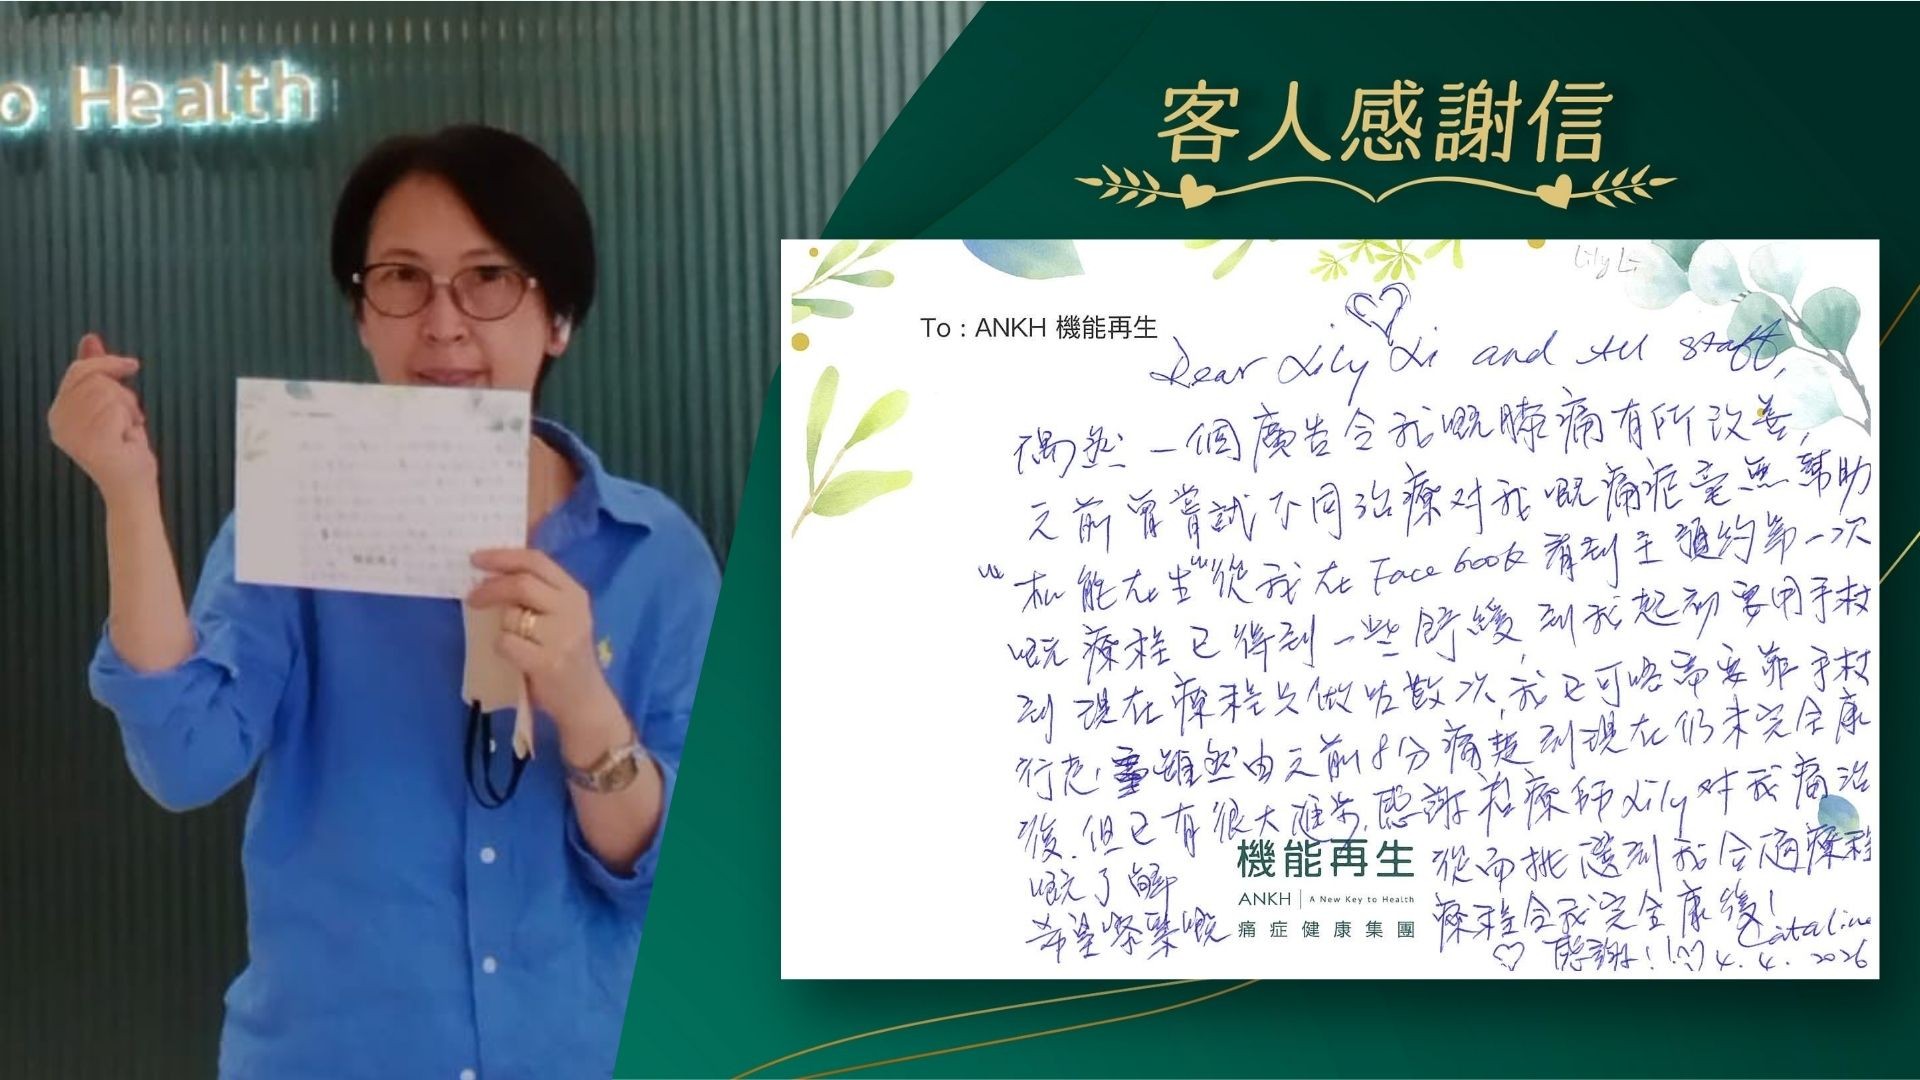 o Health
客人感謝信
Lily Li
To : ANKH 機能再生
Dear Lily Li and All staff,
偶然一個廣告令我嘅膝痛有所改善,
之前曾嘗試不同治療对我嘅痛症毫無幫助
"机能在生"從我在Facebook看到至預約第一次
嘅療程已得到一些舒緩,到我起初要用手杖
到現在療程只做咗數次,我已可唔需要靠手杖
行走,雖然由之前8分痛楚到現在仍未完全康
復.但已有很大進步.感謝治療師Lily对我痛治
嘅了解 從而挑選到我合適療程
希望緊接嘅 療程令我完全康復!
Cataline
感謝! 4.4.2026
機能再生
ANKH | A New Key to Health
痛症健康集團